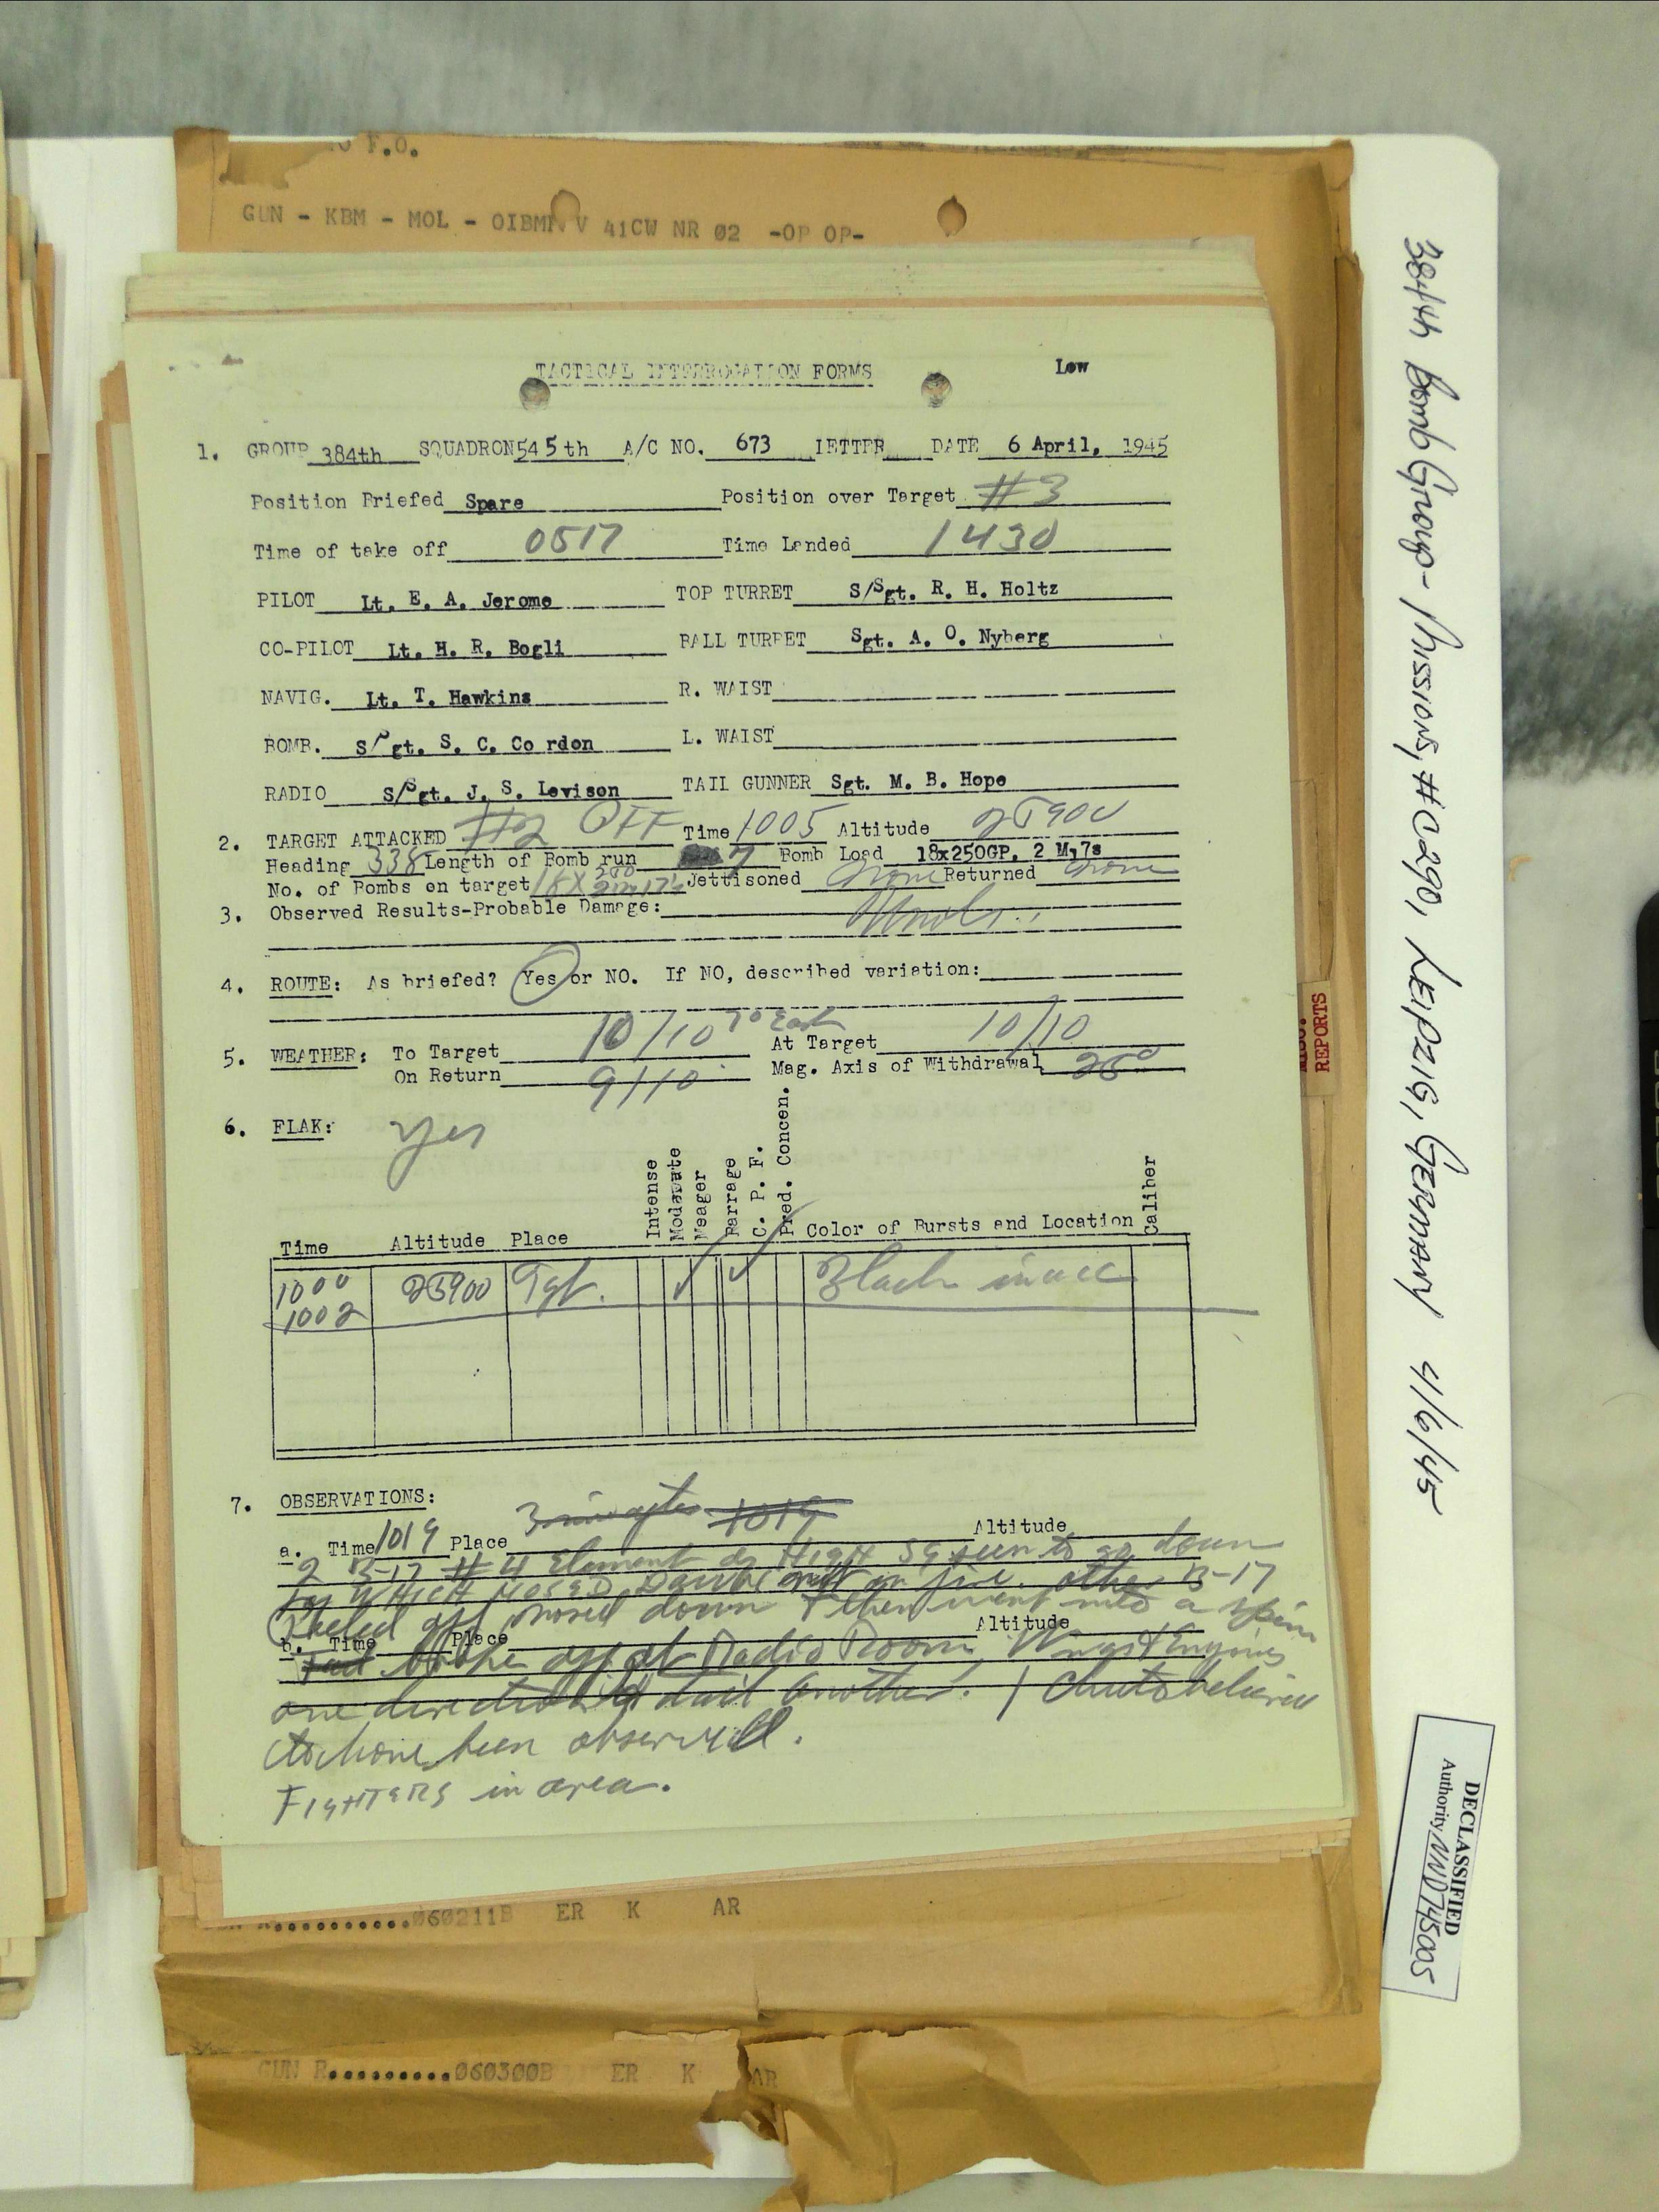 F.O.
GUN - KBM - MOL - OIBMN V 41CW NR 02 -OP OP-
TACTICAL INTERROGATION FORMS Low
1. GROUP 384th SQUADRON 545th A/C NO. 673 LETTER DATE 6 April, 1945
Position Briefed Spare Position over Target #3
Time of take off 0517 Time Landed 1430
PILOT Lt. E. A. Jerome TOP TURRET S/Sgt. R. H. Holtz
CO-PILOT Lt. H. R. Bogli BALL TURRET Sgt. A. O. Nyberg
NAVIG. Lt. T. Hawkins R. WAIST
BOMB. S/Sgt. S. C. Cordon L. WAIST
RADIO S/Sgt. J. S. Levison TAIL GUNNER Sgt. M. B. Hope
2. TARGET ATTACKED #2 OFF Time 1005 Altitude 25900
Heading 338 Length of Bomb run 7 Bomb Load 18x250GP, 2 M17s
No. of Bombs on target 18 X 250 2 M17's Jettisoned None Returned None
3. Observed Results-Probable Damage:
4. ROUTE: As briefed? Yes or NO. If NO, described variation:
5. WEATHER: To Target 10/10 to East At Target 10/10
On Return 9/10 Mag. Axis of Withdrawal 25°
6. FLAK: Yes
Time Altitude Place Intense Moderate Meager Barrage C. P. F. Pred. Concen. Color of Bursts and Location Caliber
1000 25900 Tgt. Black inacc
1002
7. OBSERVATIONS:
3 min after 1019
a. Time 1019 Place Altitude
2 B-17 #4 Element of High Sq seen to go down
on fire. other B-17
Peeled off nosed down & then went into a spin
b. Time Place Altitude
Tail broke off at Radio Room, Wings & Engines
one direction & tail another. 1 Chute believed
to have been observed.
FIGHTERS in area.
060211B ER K AR
GUN R..........060300B ER K AR
REPORTS
384th Bomb Group - Missions, #0290, LEIPZIG, GERMANY 4/6/45
DECLASSIFIED
Authority NND745005